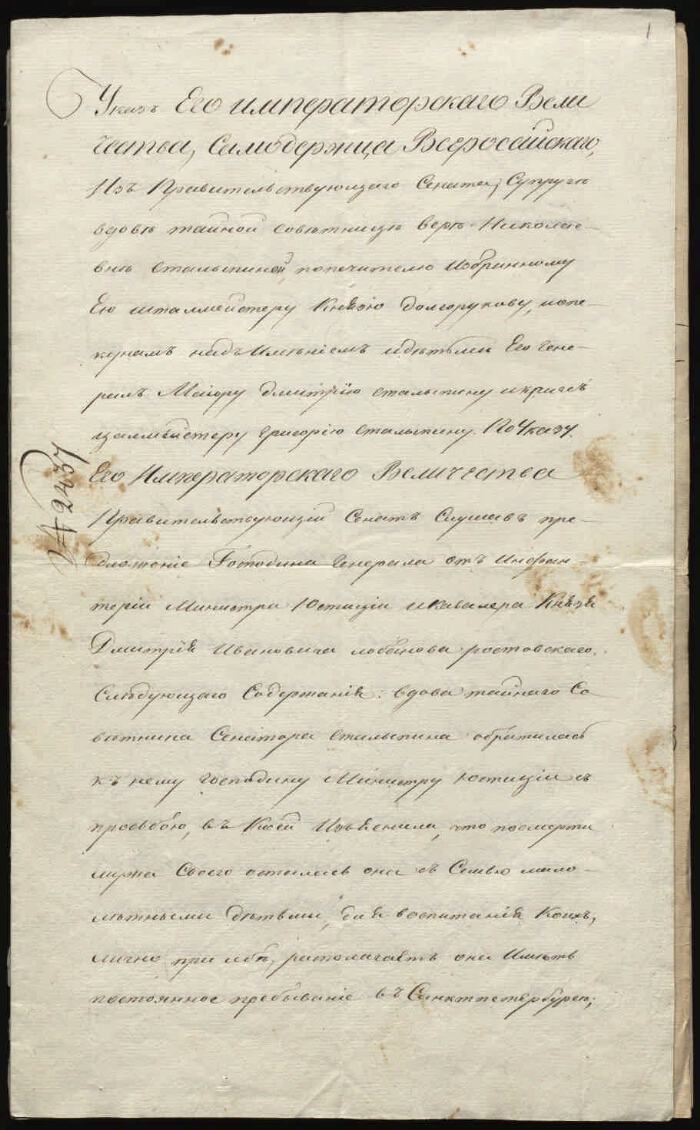 1
Указъ Его императорскаго Вели
чества, Самодержца Всеросейскаго,
Изъ Правительствующаго Сената, Супругѣ
вдовѣ тайной совѣтницѣ верѣ Николае-
внѣ Сталыпиной, попечителю Избранному
Ею шталмейстеру Князю Долгорукову, иопе-
кунамъ надъ Имѣніемъ идѣтьми Его Гене-
ралъ Маіору Дмитрію сталыпину икригсъ
цалмейстеру григорію Сталыпину. По Указу
Его Императорскаго Величества
Правительствующій Сенатъ Слушавъ пре-
дложеніе Господина Генерала отъ Инфан-
теріи Министра Юстиціи икавалера Князя
Дмитрія Ивановича лобанова ростовскаго,
Слѣдующаго Содержанія: вдова тайнаго Со
вѣтника Сенатора Сталыпина обратилась
къ нему господину Министру Юстиціи съ
прозьбою, въ Коей Изъяснила, что посмерти
мужа Своего осталась она съ Семью мало-
лѣтными дѣтьми, для воспитанія Коихъ,
лично при себѣ, располагаетъ она Имѣть
постоянное пребываніе въ Санктпетербургѣ;